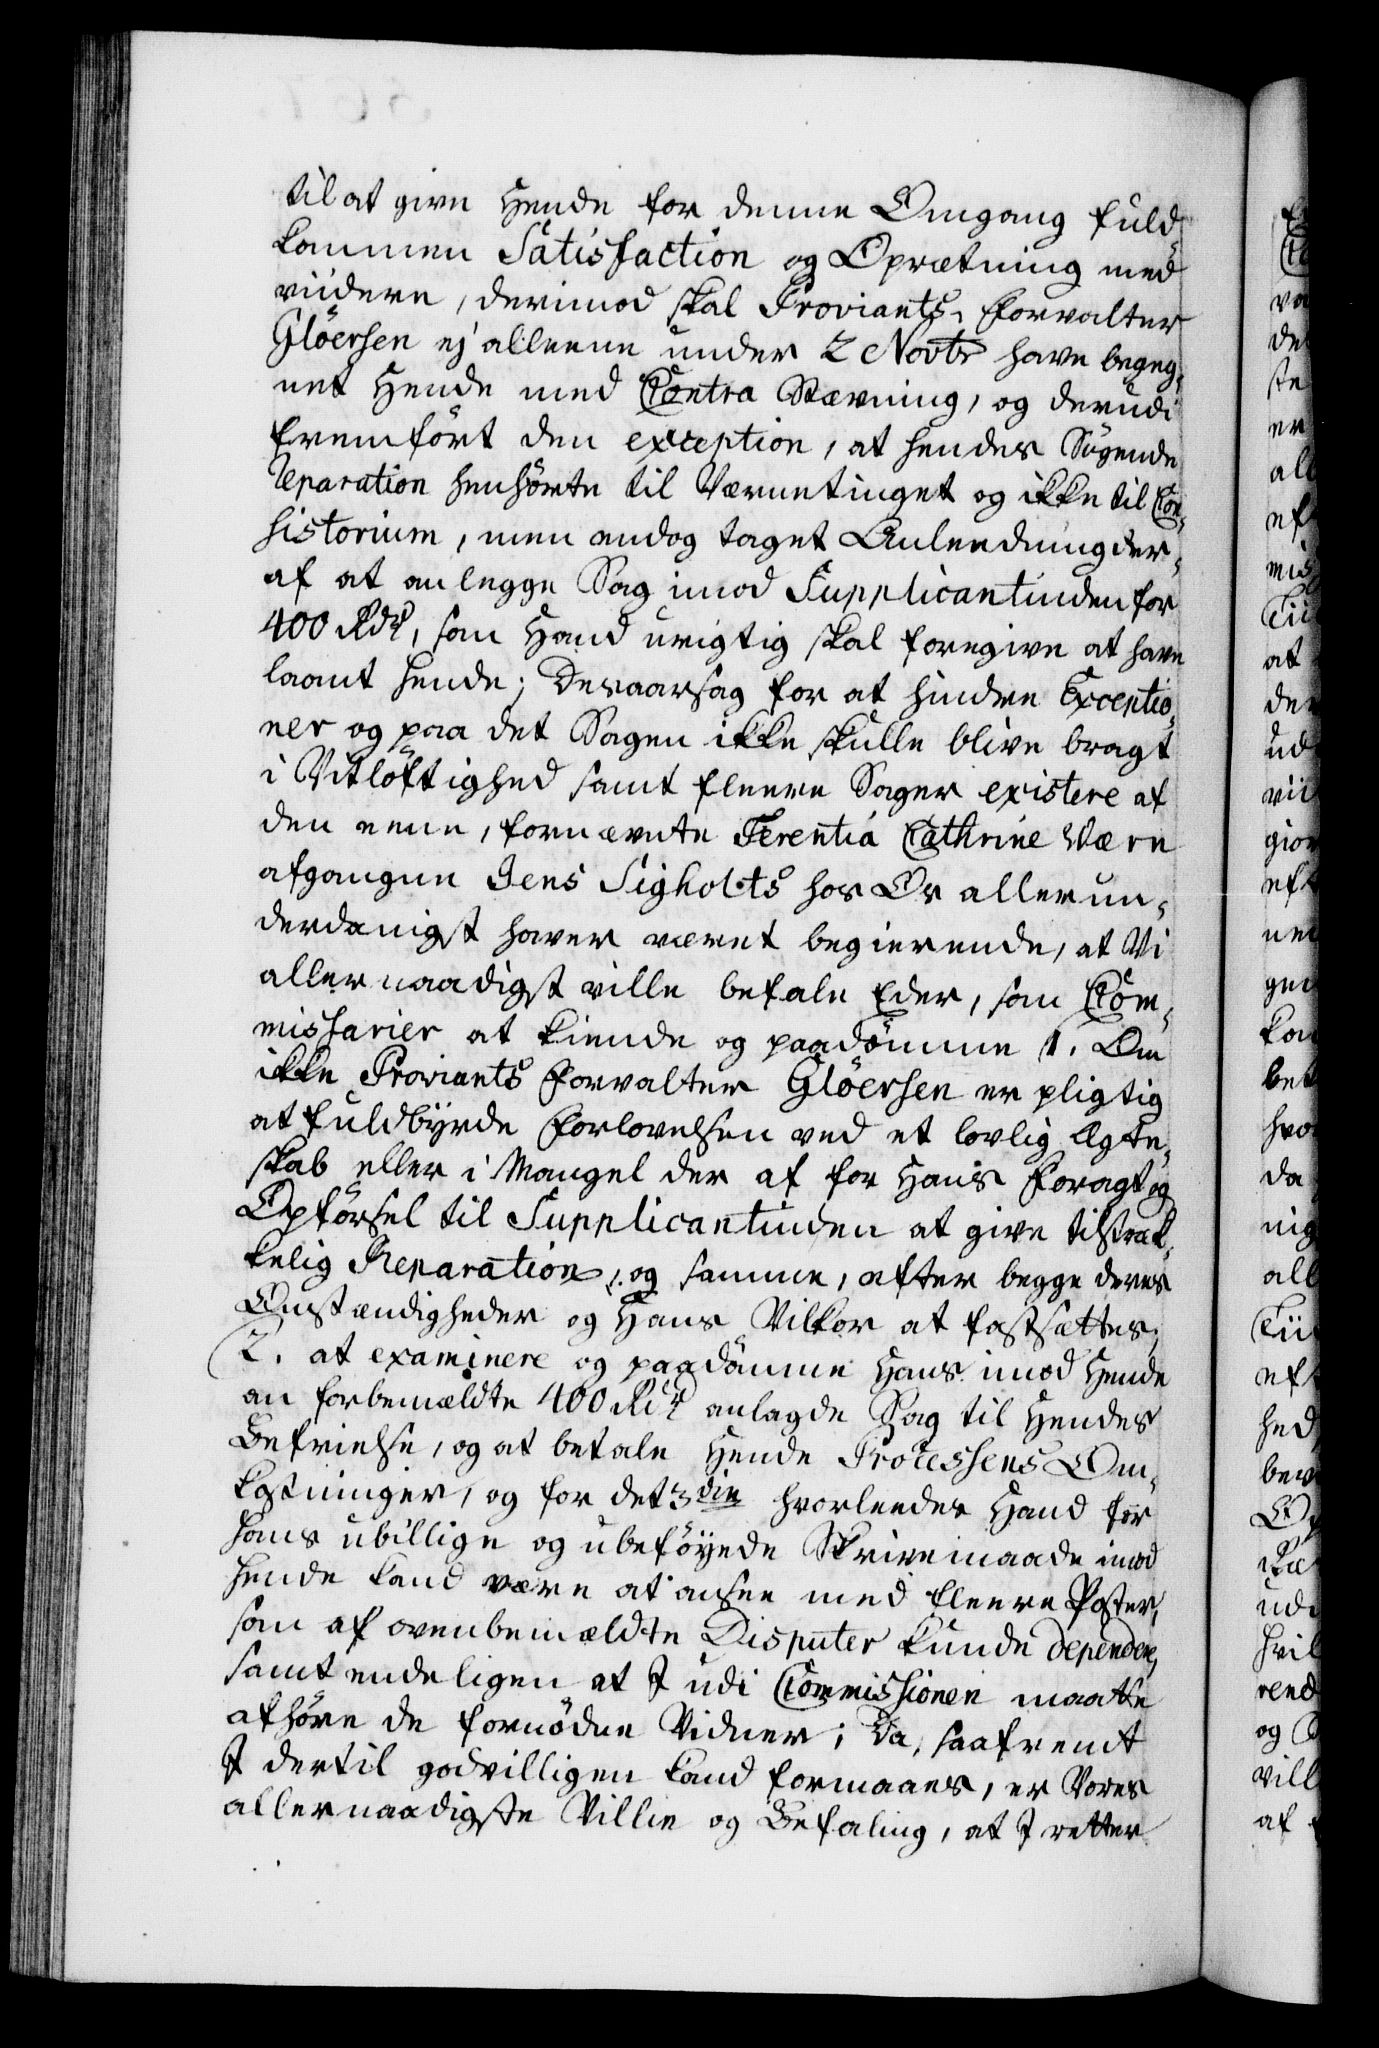 til at give Hende for denne Omgang fuld-
kommen Satisfaction og Oprætning med
viidere, derimod skal Proviants-Forvalter
Glöersen ej alleene under 2 Novbr have begeg-
net Hende med Contra Stævning, og derudi
fremfört den exception, at hendes Sögende
Reparation henhörte til Værnetinget og ikke til Con-
sistorium, men endog taget Anleedning der-
af at anlegge Sag imod Supplicantinden for
400 Rdr, som Hand urigtig skal foregive at have
laant hende; Desaarsag for at hindre Exceptio-
ner og paa det Sagen ikke skulle blive bragt
i Vitlöftighed samt fleere Sager existere af
den eene, fornævnte Terentia Cathrine Være
afgangen Jens Sigholts hos Os allerun-
derdanigst haver været begierende, at Vi
allernaadigst ville befale Eder, som Com-
missarier at kiende og paadömme 1. Om
ikke Proviants Forvalter Glöersen er pligtig
at fuldbyrde Forlovelsen ved et lovlig Ægte-
skab eller i Mangel der af for Hans Foragt og
Opförsel til Supplicantinden at give tilstræk-
kelig Reparation, og samme, efter begge deres
Omstændigheder og Hans Vilkor at fastsættes;
2. at examinere og paadömme Hans imod Hende
an forbemældte 400 Rdr anlagde Sag til Hendes
Befrielse, og at betale Hende Processens Om-
kostninger, og for det 3die hvorleedes Hand for
hans ubillige og ubeföyede Skrivemaade imod
hende kand være at ansee med fleere Poster,
som af ovenbemældte Disputer kunde dependere,
samt endeligen at I udi Commissionen maatte
afhöre de fornödne Vidner; Da, saafremt
I dertil godvilligen kand formaaes, er Vores
allernaadigste Villie og Befaling, at I retter